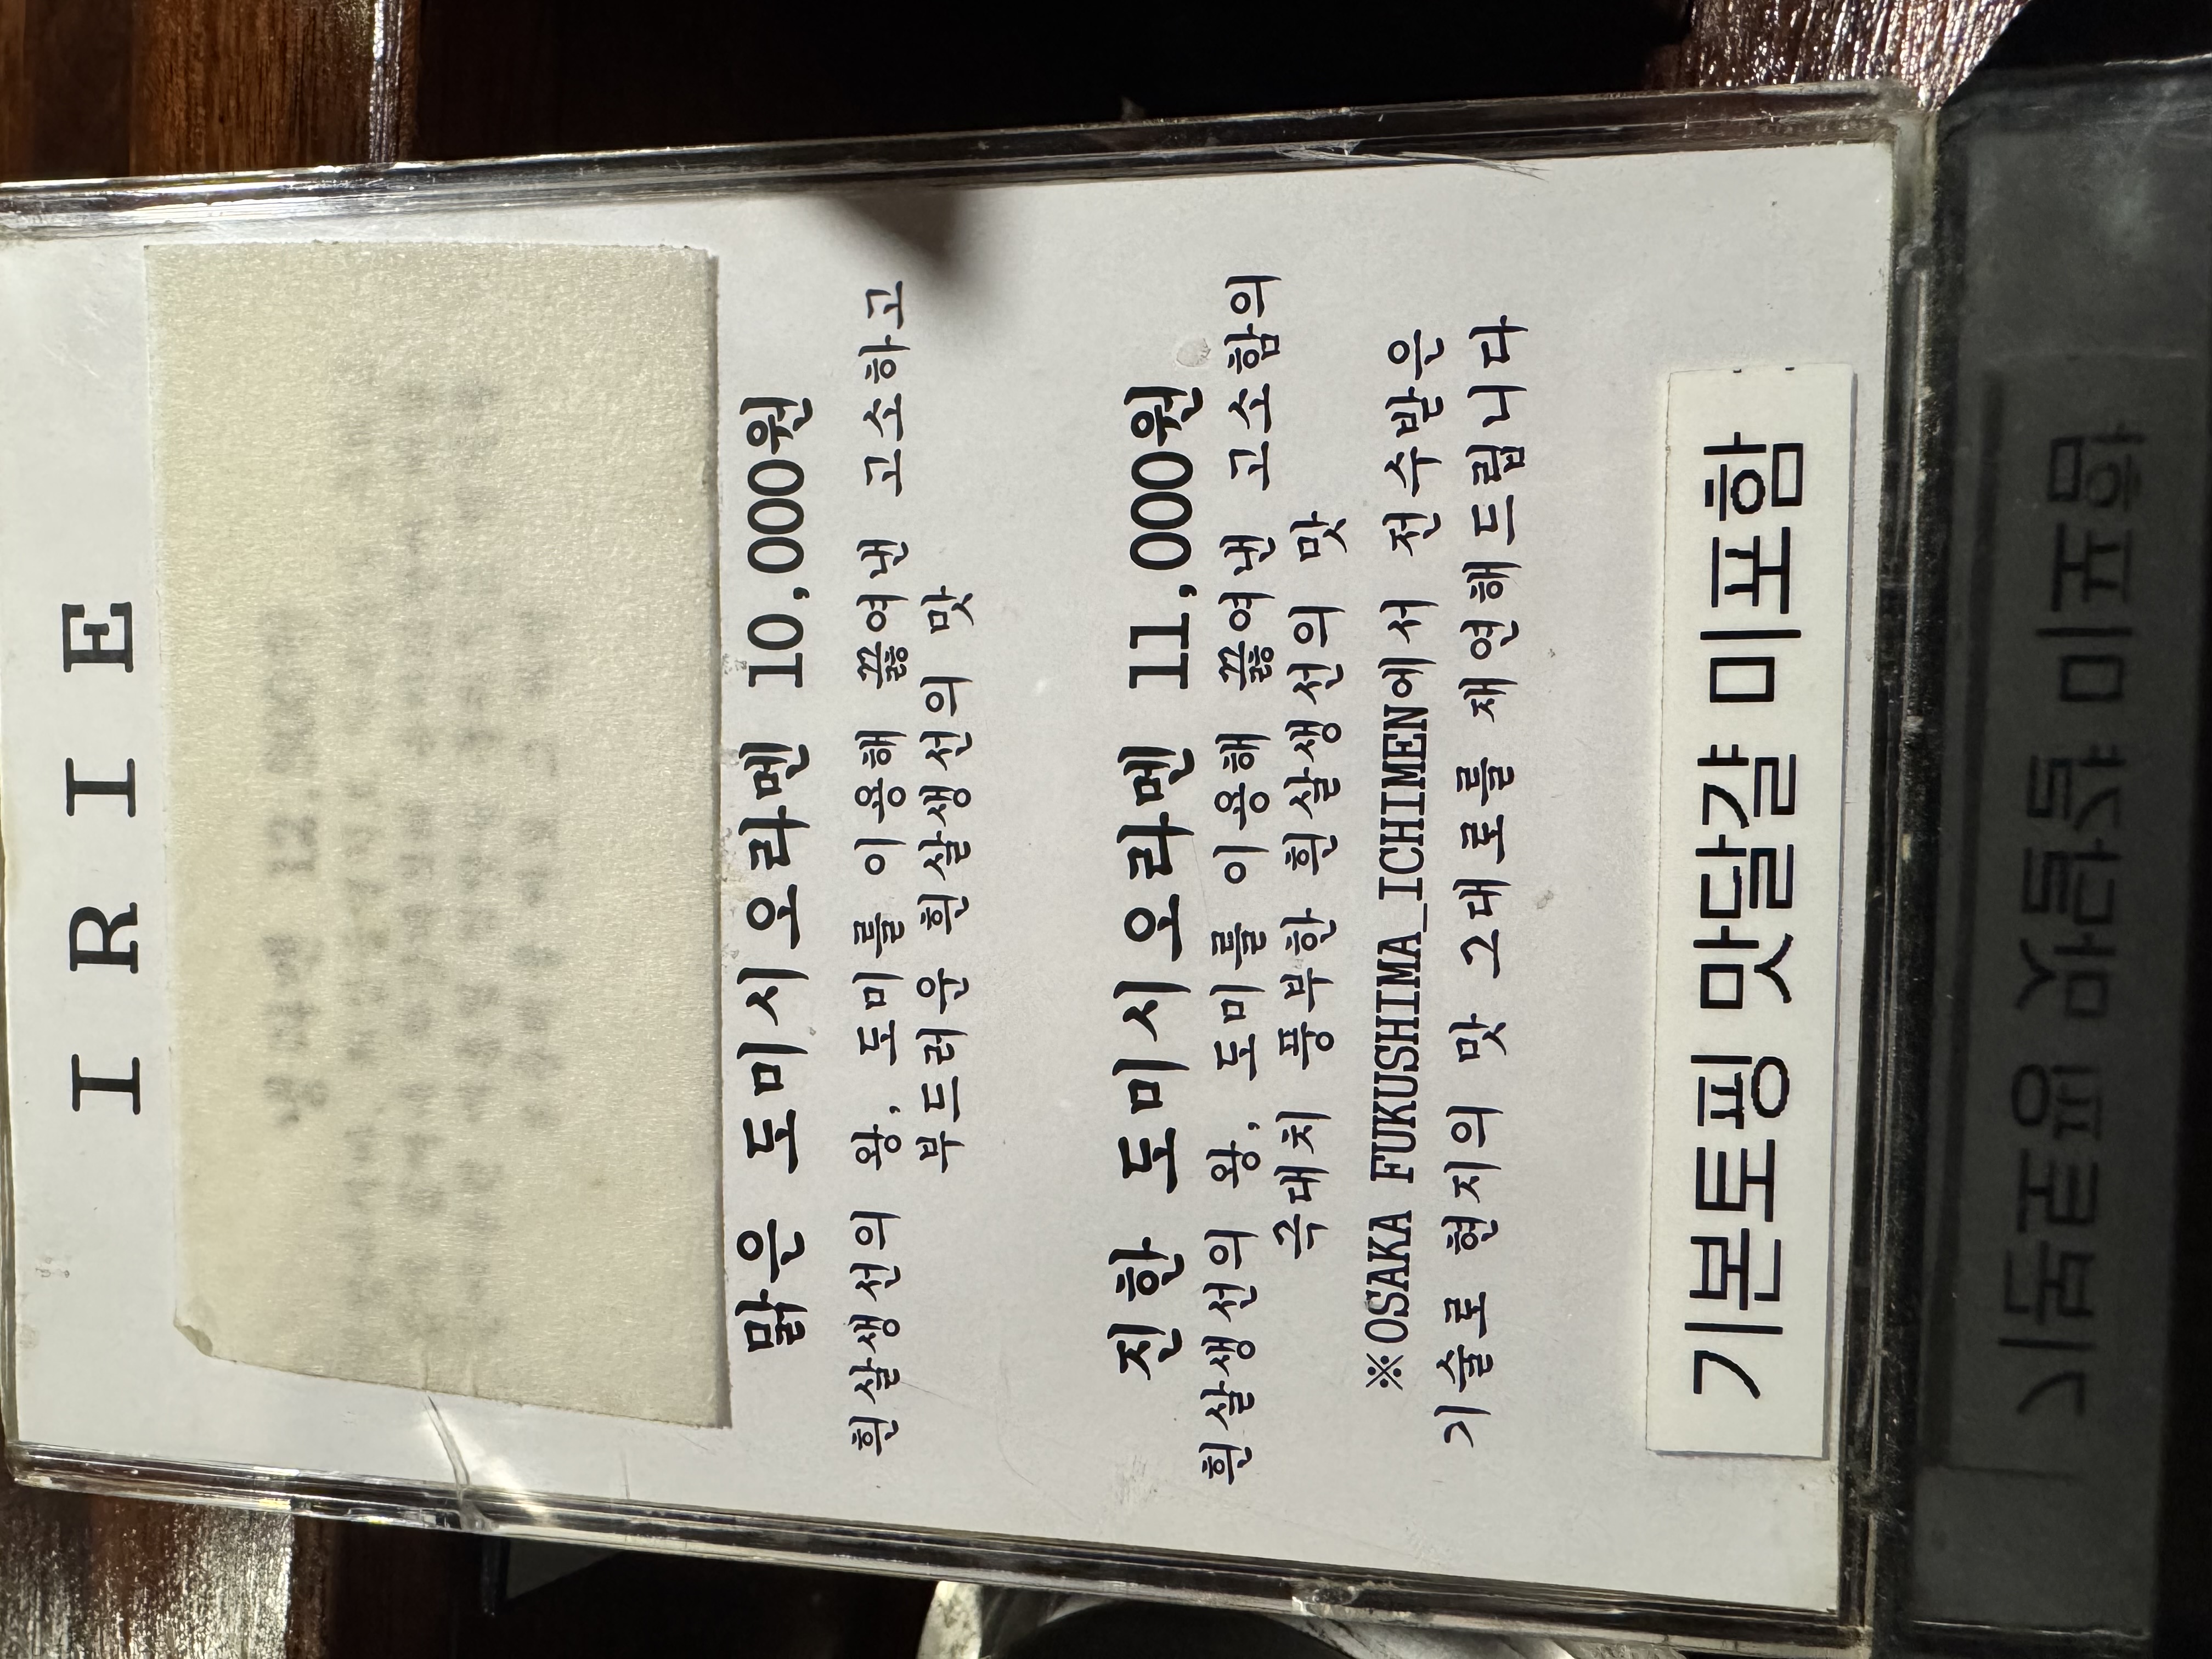 I R I E
맑은 도미시오라멘 10,000원
흰살생선의 왕, 도미를 이용해 끓여낸 고소하고
부드러운 흰살생선의 맛
진한 도미시오라멘 11,000원
흰살생선의 왕, 도미를 이용해 끓여낸 고소함의
극대치 풍부한 흰살생선의 맛
※OSAKA FUKUSHIMA_ICHIMEN에서 전수받은
기술로 현지의 맛 그대로를 재연해드립니다
기본토핑 맛달걀 미포함